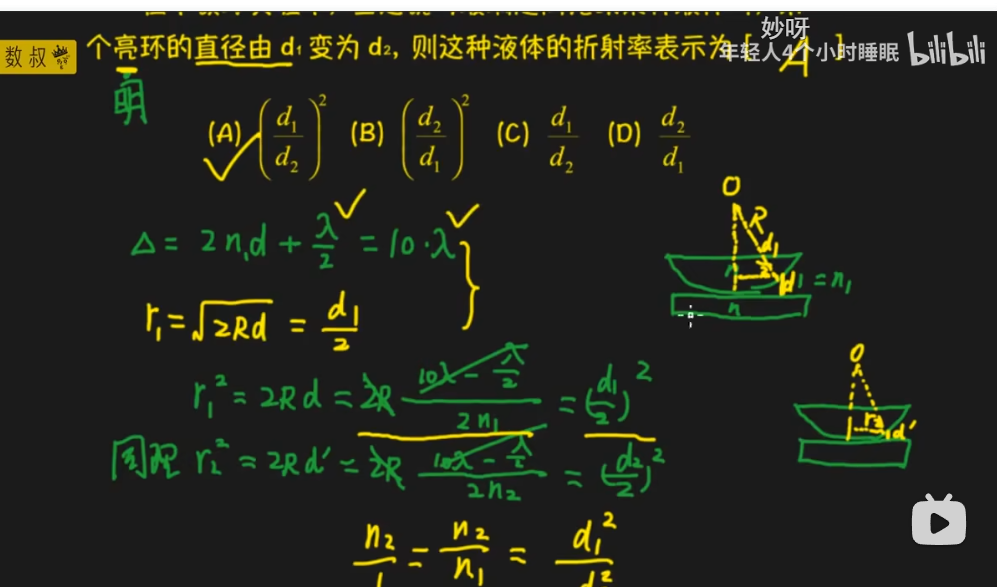 数叔
个亮环的直径由 d₁ 变为 d₂，则这种液体的折射率表示为 [ A ]
妙呀
年轻人4个小时睡眠
bilibili
明
(A) (d₁/d₂)² (B) (d₂/d₁)² (C) d₁/d₂ (D) d₂/d₁
Δ = 2n₁d + λ/2 = 10·λ
r₁ = √(2Rd) = d₁/2
r₁² = 2Rd = 2R (10λ - λ/2)/(2n₁) = (d₁/2)²
同理 r₂² = 2Rd' = 2R (10λ - λ/2)/(2n₂) = (d₂/2)²
n₂/1 = n₂/n₁ = d₁²/d₂²
O
R
d₁
d₁ = n₁
n
O
r₂
d'